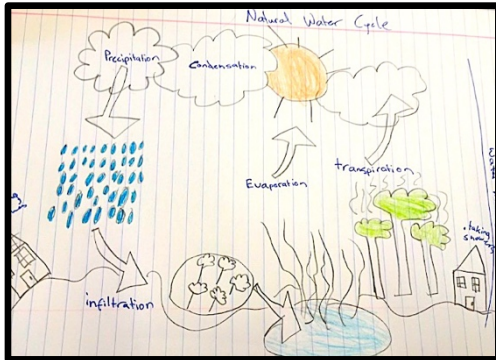 Natural Water Cycle
Precipitation
Condensation
Evaporation
transpiration
.taking
showers
infiltration